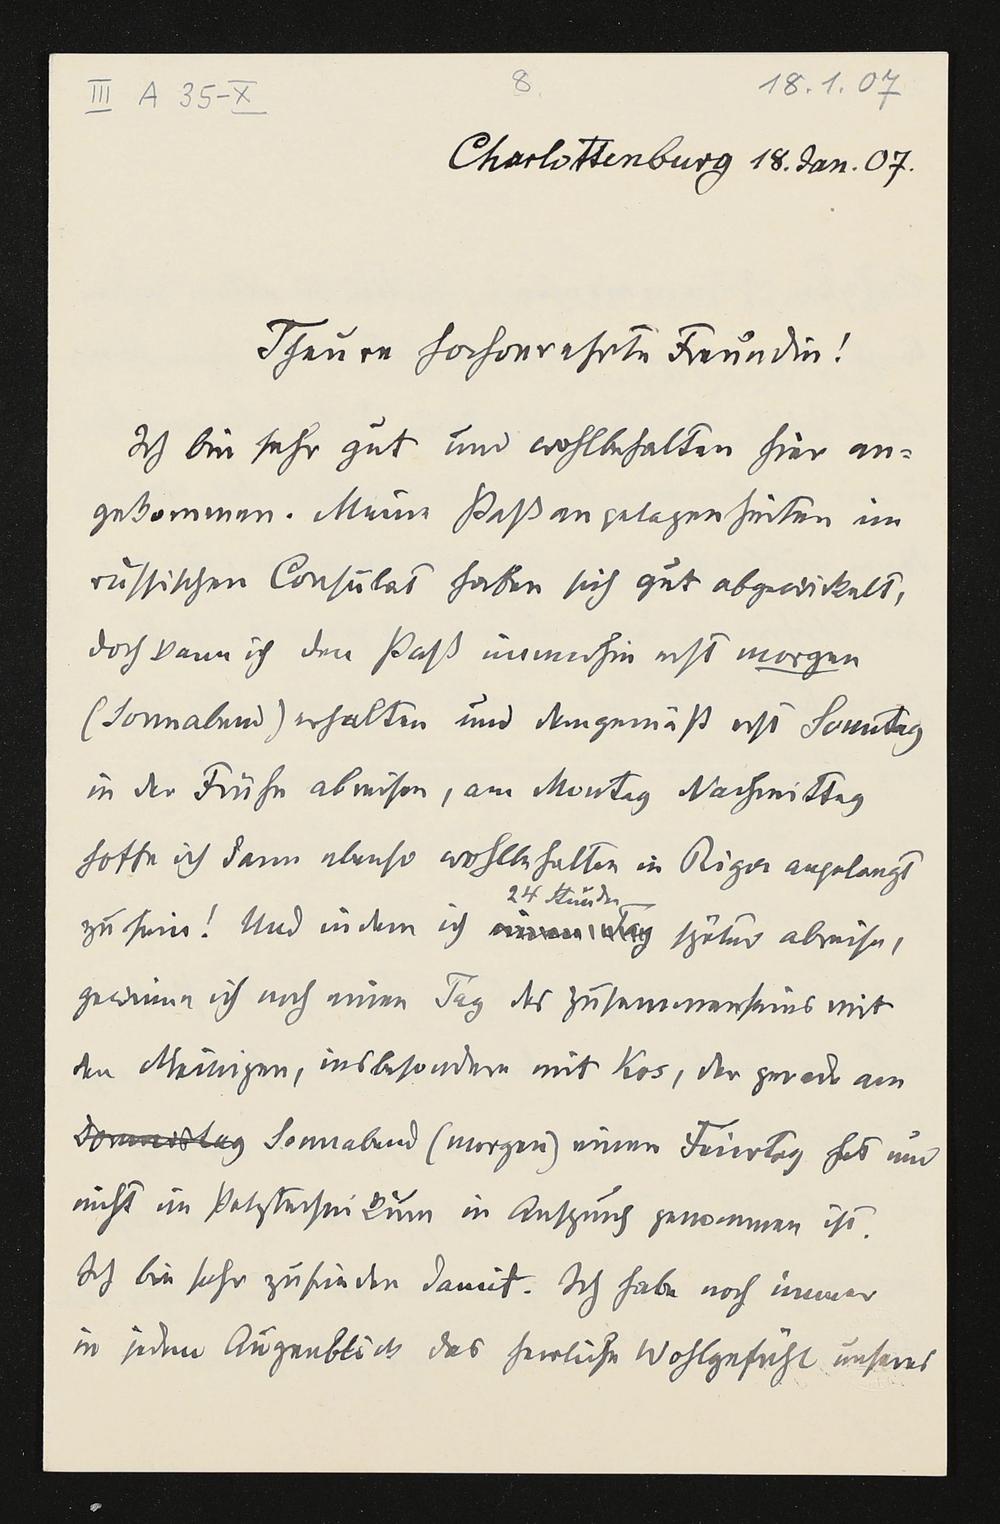 III A 35-X
8
18.1.07
Charlottenburg 18. Jan. 07.
Theure hochverehrte Freundin!
Ich bin sehr gut und wohlbehalten hier an=
gekommen. Meine Paßangelegenheiten im
russischen Consulat haben sich gut abgewickelt,
doch kann ich den Paß immerhin erst morgen
(Sonnabend) erhalten und demgemäß erst Sonntag
in der Frühe abreisen, am Montag Nachmittag
hoffe ich dann ebenso wohlbehalten in Riga angelangt
zu sein! Und indem ich einen Tag 24 Stunden später abreise,
gewinne ich noch einen Tag des Zusammenseins mit
den Meinigen, insbesondere mit Kos, der gerade am
Donnerstag Sonnabend (morgen) einen Feiertag hat und
nicht im Polytechnikum in Anspruch genommen ist.
Ich bin sehr zufrieden damit. Ich habe noch immer
in jedem Augenblick das herrliche Wohlgefühl unseres